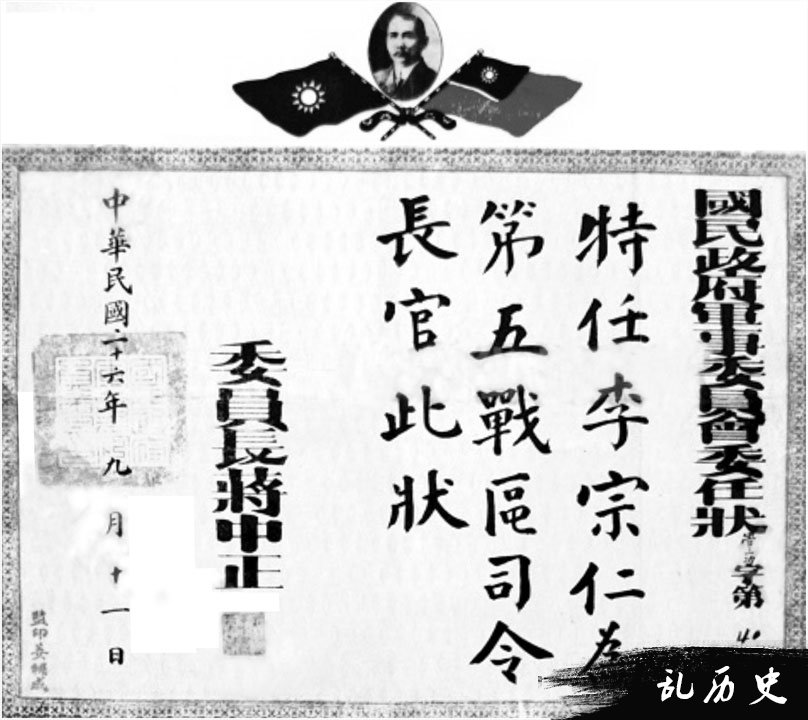 國民政府軍事委員會委任狀
字第
特任李宗仁為
第五戰區司令
長官此狀
委員長蔣中正
中華民國二十六年九月十一日
監印
乱历史